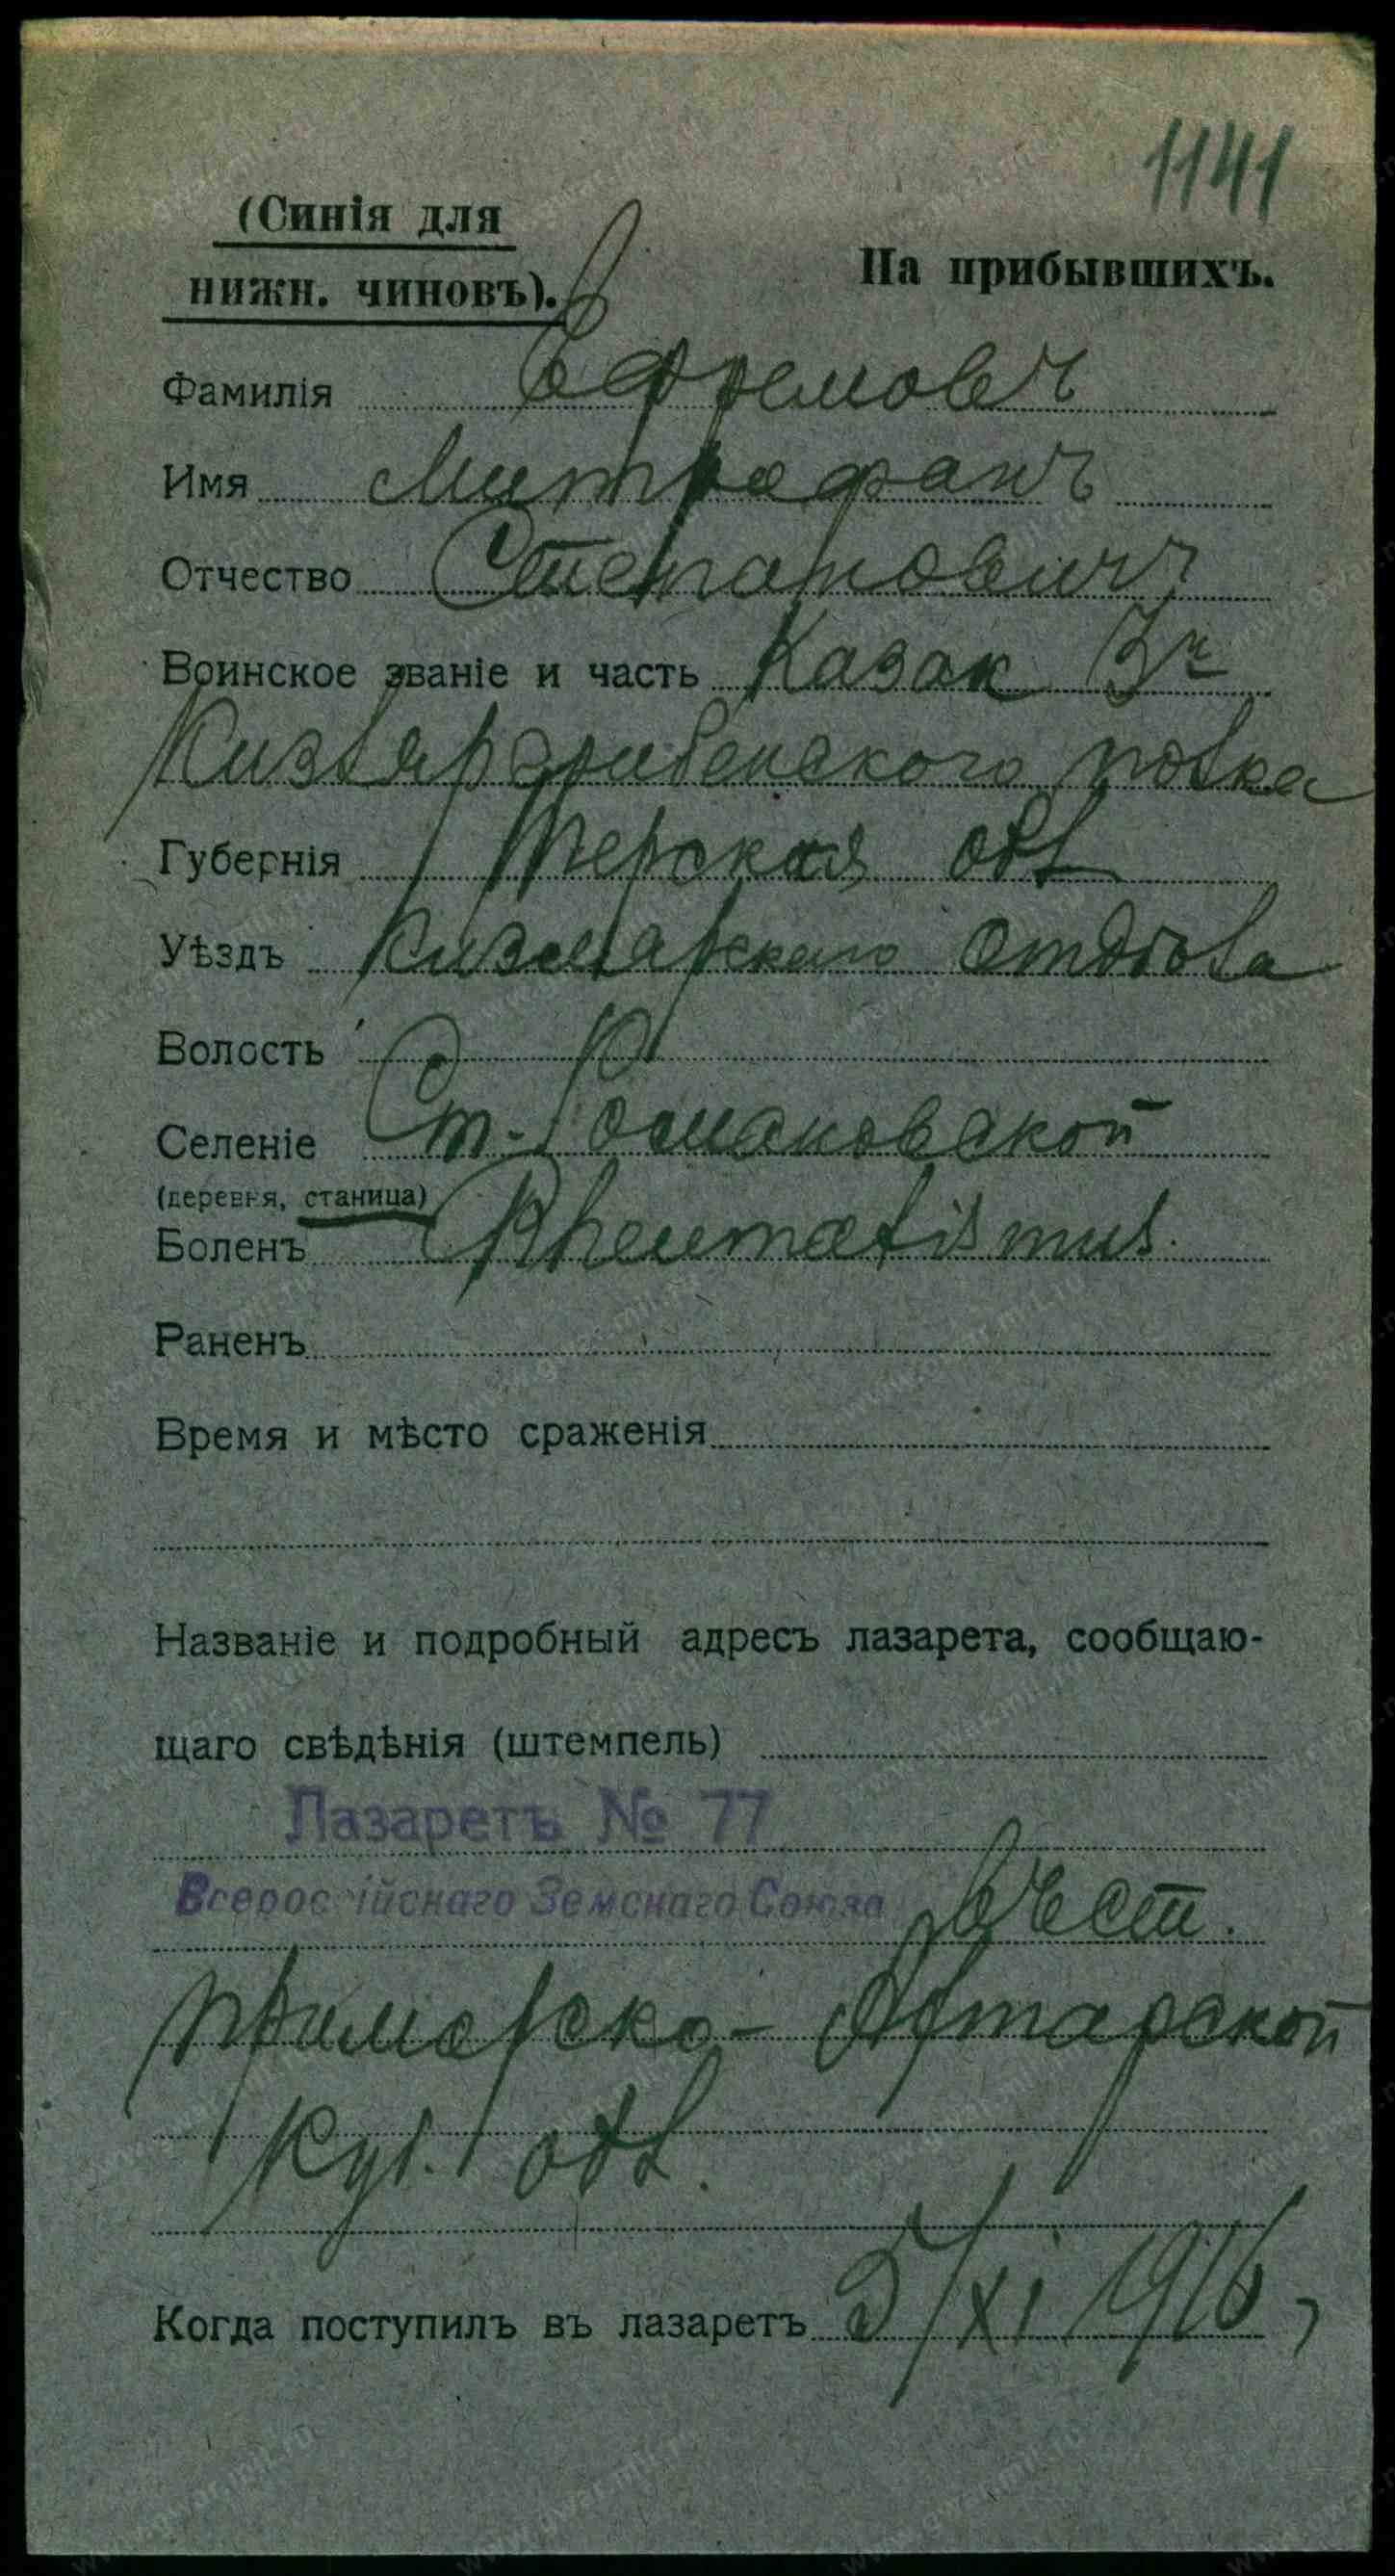 1141
(Синія для
нижн. чиновъ).
На прибывшихъ.
Фамилія Ефремовъ
Имя Митрофанъ
Отчество Степановичъ
Воинское званіе и часть Казак 3го
Кизляро-Гребенского полка
Губернія Терская обл
Уѣздъ Кизлярскаго Отдѣла
Волость
Селеніе Ст. Романовской
(деревня, станица)
Боленъ Rheumatismus.
Раненъ
Время и мѣсто сраженія
Названіе и подробный адресъ лазарета, сообщаю-
щаго свѣдѣнія (штемпель)
Лазаретъ № 77
Всероссійскаго Земскаго Союза въ ст.
Приморско-Ахтарской
Куб. обл.
Когда поступилъ въ лазаретъ 5/XI 1916 г